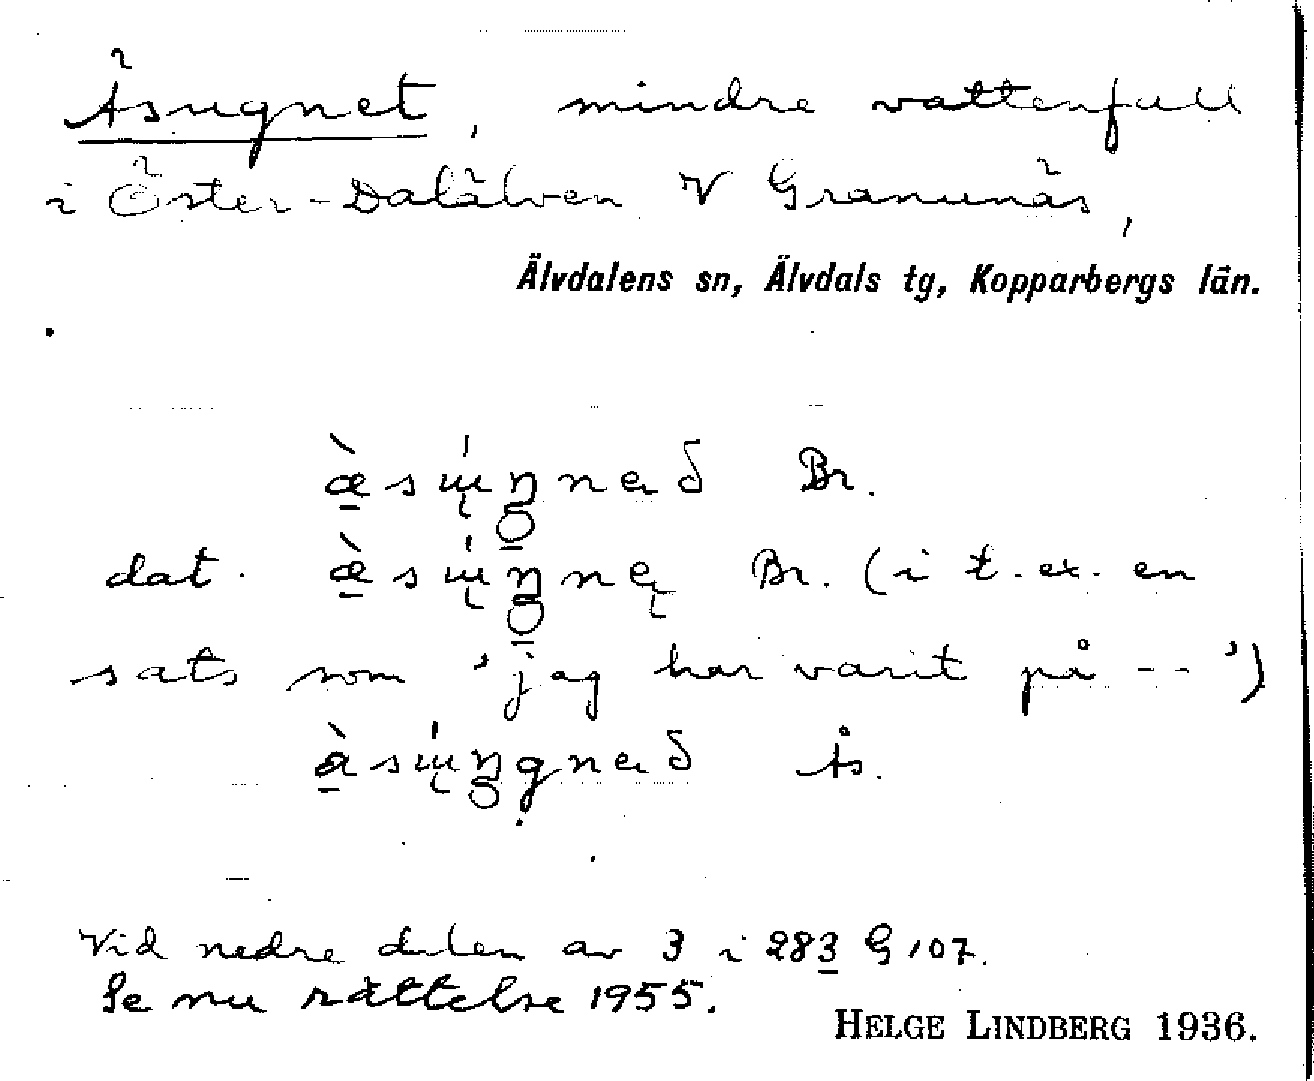 Äsugnet, mindre vattenfall
i Öster-Dalälven V Granunäs,
Älvdalens sn, Älvdals tg, Kopparbergs län.
Br.
dat. Br. (i t. ex. en
sats som 'jag har varit på -- ')
Ås.
Vid nedre delen av 3 i 283 G 107.
Se nu rättelse 1955.
HELGE LINDBERG 1936.